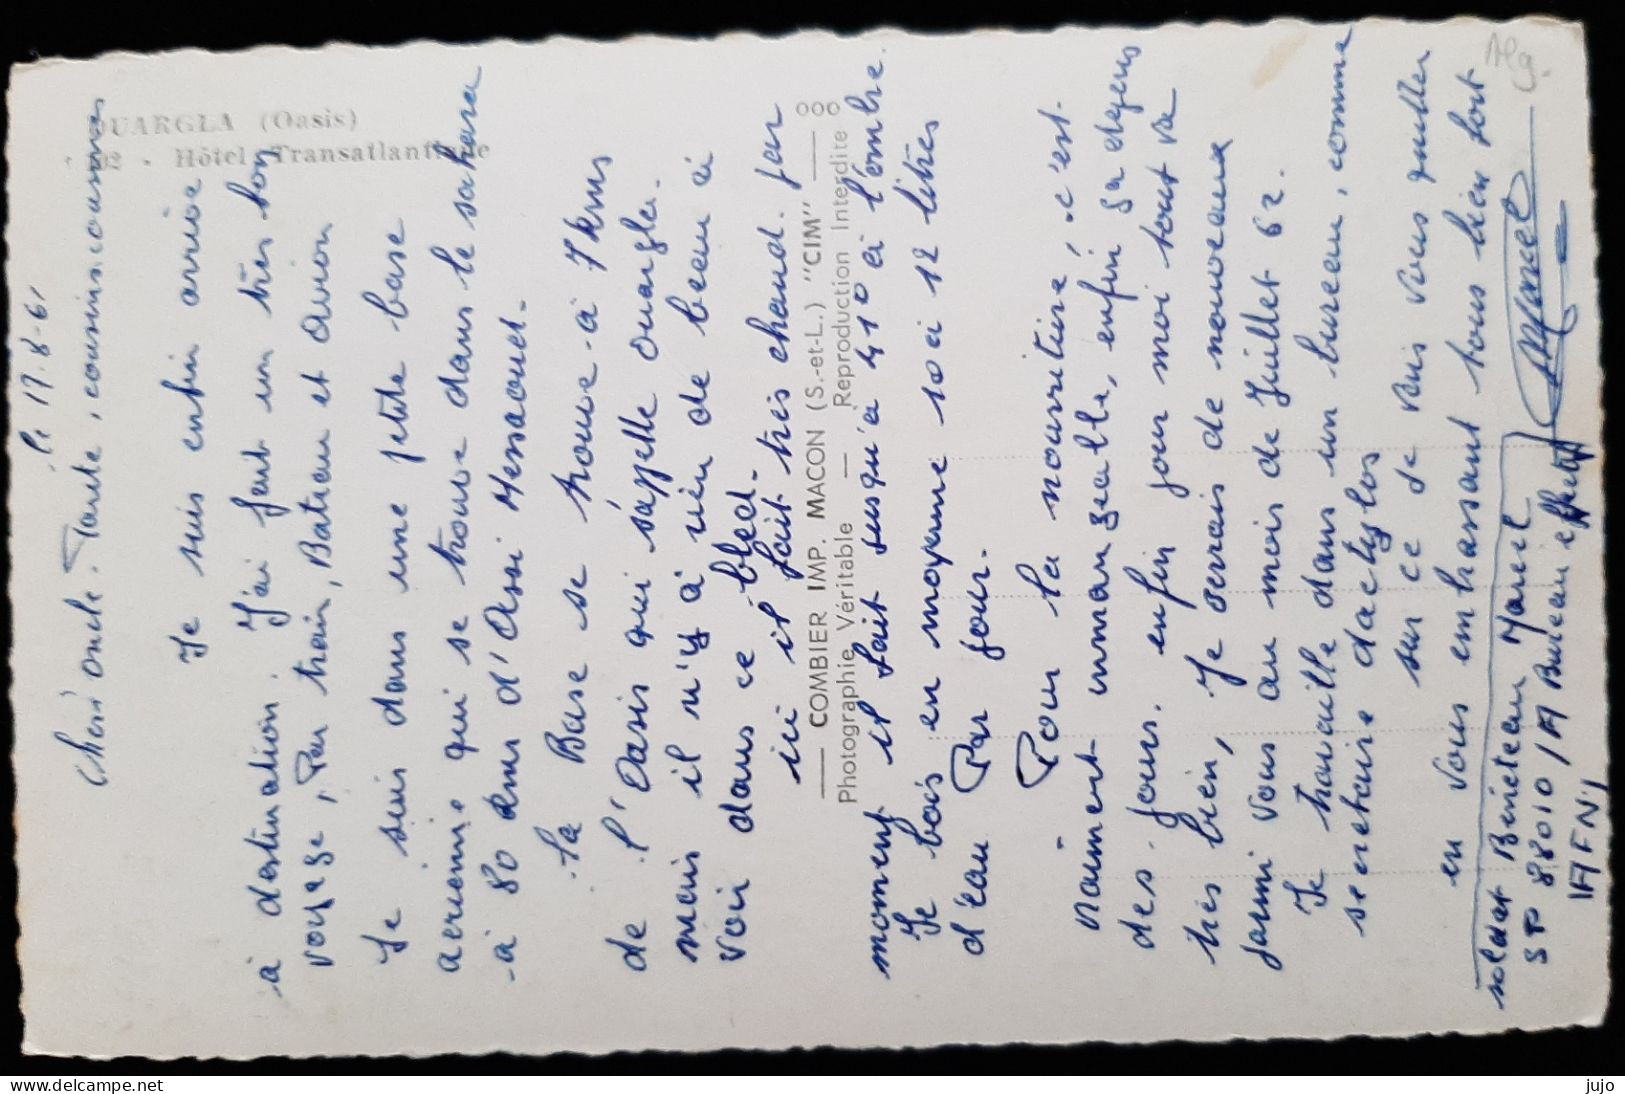 OUARGLA (Oasis)
12 - Hôtel Transatlantique
le 17-8-61
Chers oncle. Tante, cousins cousines
Je suis enfin arrivé
à destination. J'ai fait un très bon
voyage, Par train, Bateau et avion
Je suis dans une petite base
aerienne qui se trouve dans le sahara
à 80 kms d'Assi Messaoud.
la Base se trouve à 7 kms
de l'Oasis qui s'appelle ouargla.
mais il n'y à rien de beau à
voir dans ce bled.
ici il fait très chaud. par
moment il fait jusqu'à 41° à l'ombre.
Je bois en moyenne 10 à 12 litres
d'eau Par jour.
Pour la nourriture, c'est
vraiment immangeable, enfin ça depens
des jours. enfin pour moi tout va
très bien, Je serais de nouveaux
parmi vous au mois de Juillet 62.
Je travaille dans un bureau, comme
secretaire dactylos
sur ce je vais vous quitter
en vous embrassant tous bien fort
Marcel
soldat Bineteau Marcel
SP 88010 /A Bureau effectif
AFN,
COMBIER IMP. MACON (S.-et-L.) "CIM"
Photographie Véritable — Reproduction Interdite
Alg.
www.delcampe.net
jujo